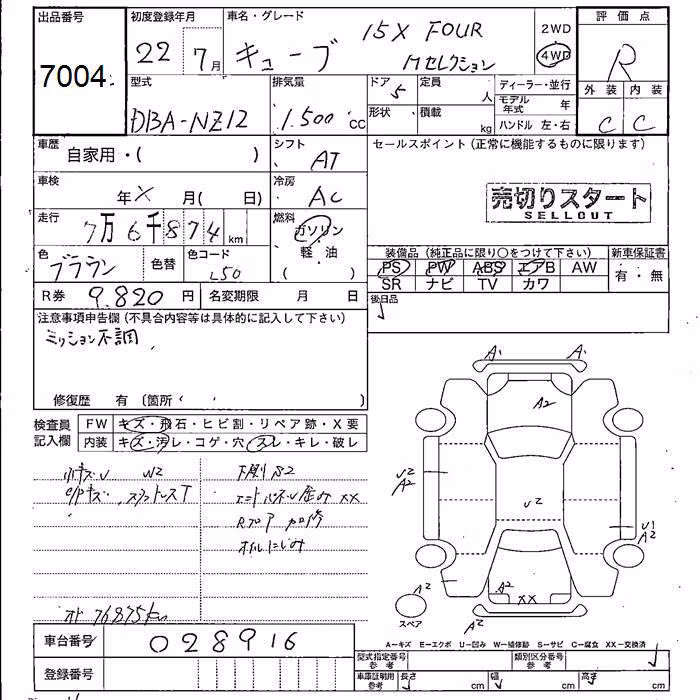 出品番号 初度登録年月 車名・グレード 15X FOUR 2WD 評価点
7004 22 年 7 月 キューブ Mセレクション 4WD R
型式 排気量 ドア 定員 ディーラー・並行 外装 内装
DBA-NZ12 1.500 cc 5 人 モデル年式 年 C C
形状 積載 kg ハンドル 左・右
車歴 自家用・( ) シフト AT セールスポイント(正常に機能するものに限ります)
車検 年 X 月( 日) 冷房 AC 売切りスタート
SELLOUT
走行 7万6千874 km 燃料 ガソリン
軽油
( )
色 ブラウン 色替 色コード L50 装備品(純正品に限り○をつけて下さい) 新車保証書
PS PW ABS エアB AW 有・無
SR ナビ TV カワ
R券 9.820 円 名変期限 月 日 後日品
注意事項申告欄(不具合内容等は具体的に記入して下さい)
ミッション不調
修復歴 有(箇所 )
検査員 FW キズ・飛石・ヒビ割・リペア跡・X要
記入欄 内装 キズ・汚レ・コゲ・穴・スレ・キレ・破レ
小キズU W2 下廻りS2
XX
Rフロア 加修
オイルにじみ
76875km
A1 A1
A2
U2
A2
U2
U1
A2
A2 A2 A2
XX
スペア A2
A-キズ E-エクボ U-凹み W-補修跡 S-サビ C-腐食 XX-交換済
車台番号 028916
登録番号
型式指定番号 参考 類別区分番号 参考
車庫証明用 参考 長さ cm 幅 cm 高さ cm